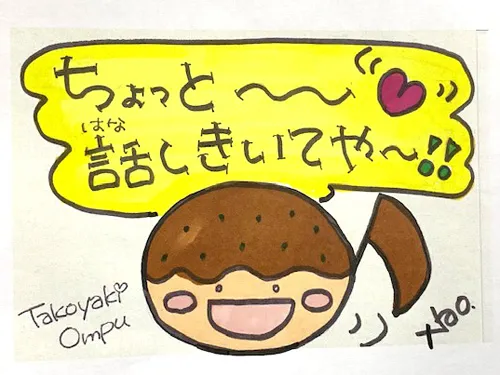 ちょっと〜〜
はな
話しきいてや〜!!
Takoyaki
Ompu